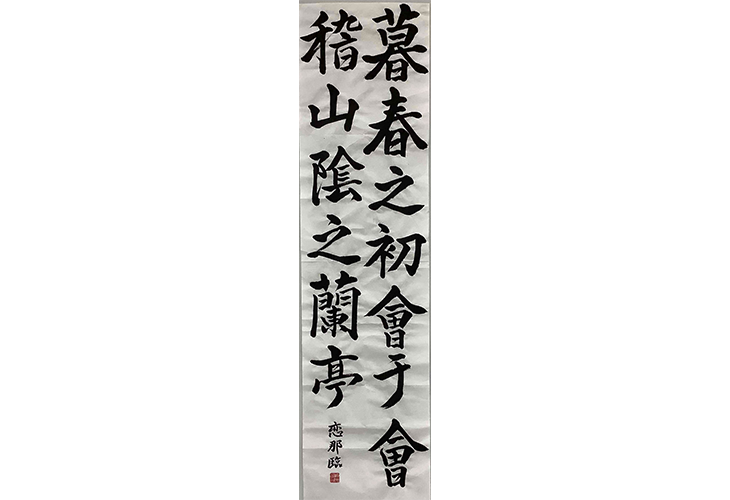 暮春之初會于會
稽山陰之蘭亭
恋那臨